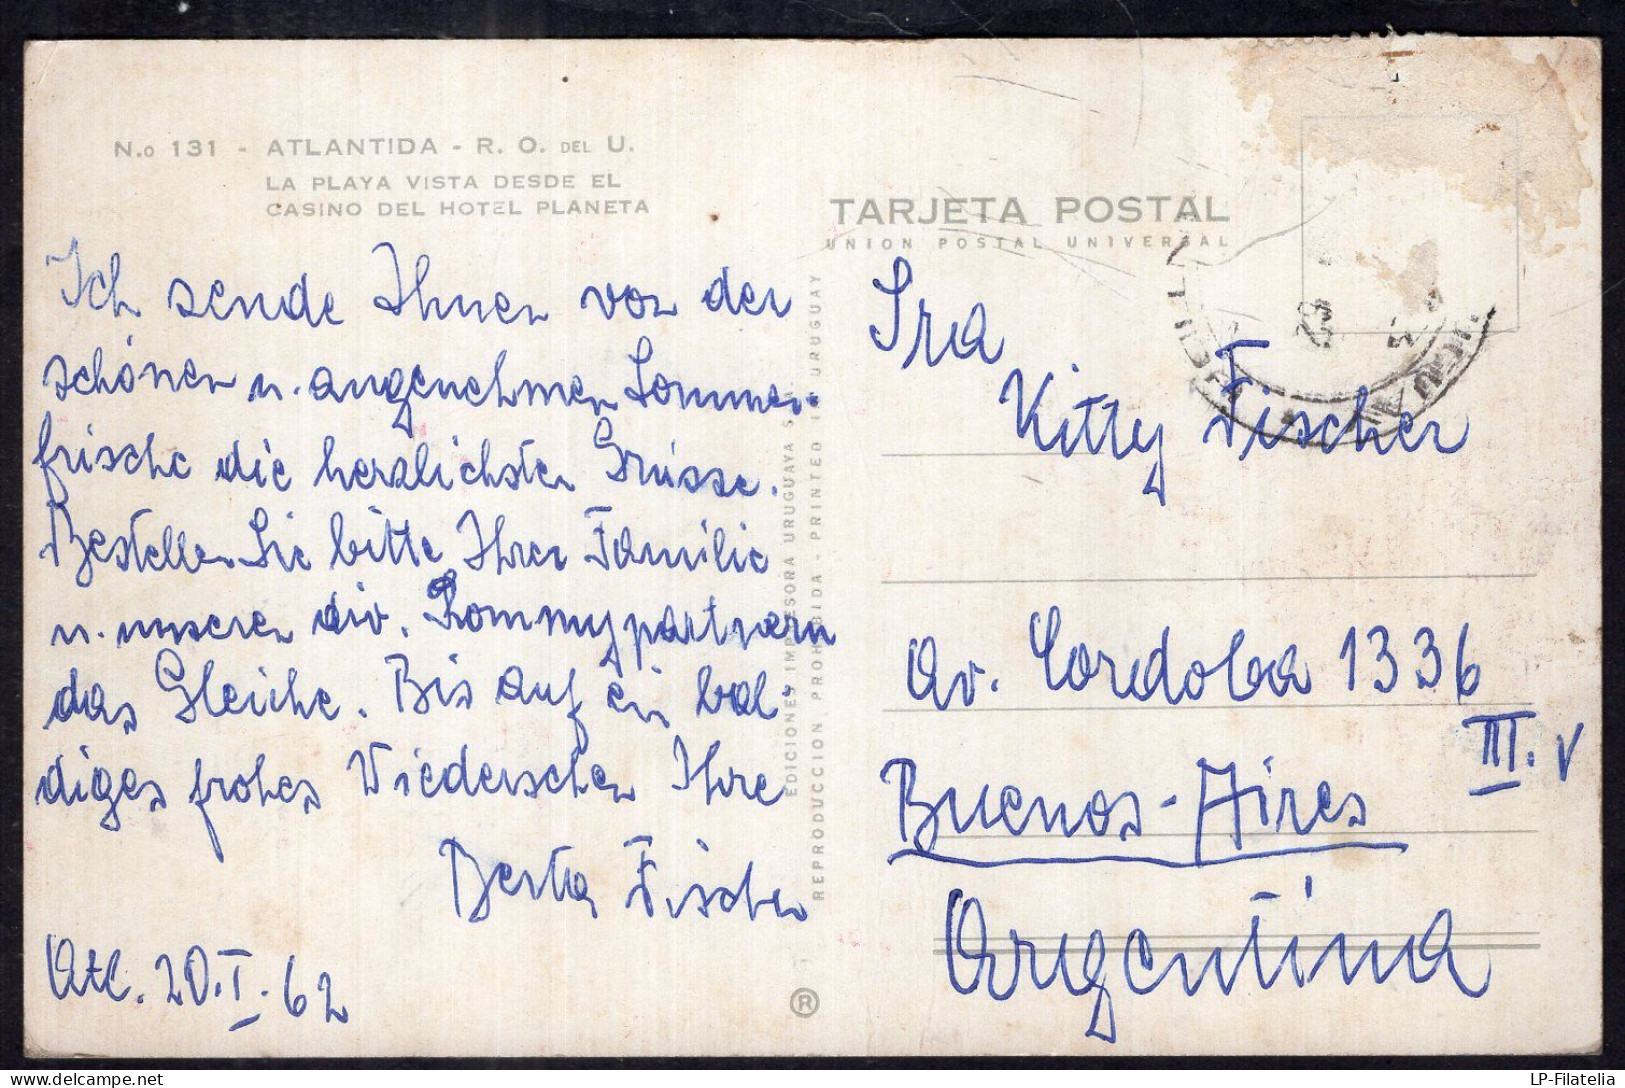 N.o 131 - ATLANTIDA - R. O. DEL U.
LA PLAYA VISTA DESDE EL
CASINO DEL HOTEL PLANETA
Ich sende Ihnen von der
schönen u. angenehmen Sommer-
frische die herzlichsten Grüsse.
Bestellen Sie bitte Ihrer Familie
u. unseren div. Rommypartnern
das Gleiche. Bis auf ein bal-
diges frohes Wiedersehen Ihre
Berta Fischer
Atl. 20.I.62
EDICIONES IMPRESORA URUGUAYA S.A.
REPRODUCCION PROHIBIDA - PRINTED IN URUGUAY
®
TARJETA POSTAL
UNION POSTAL UNIVERSAL
Sra
Kitty Fischer
Av. Cordoba 1336
III. V
Buenos-Aires
Argentina
LP-Filatelia